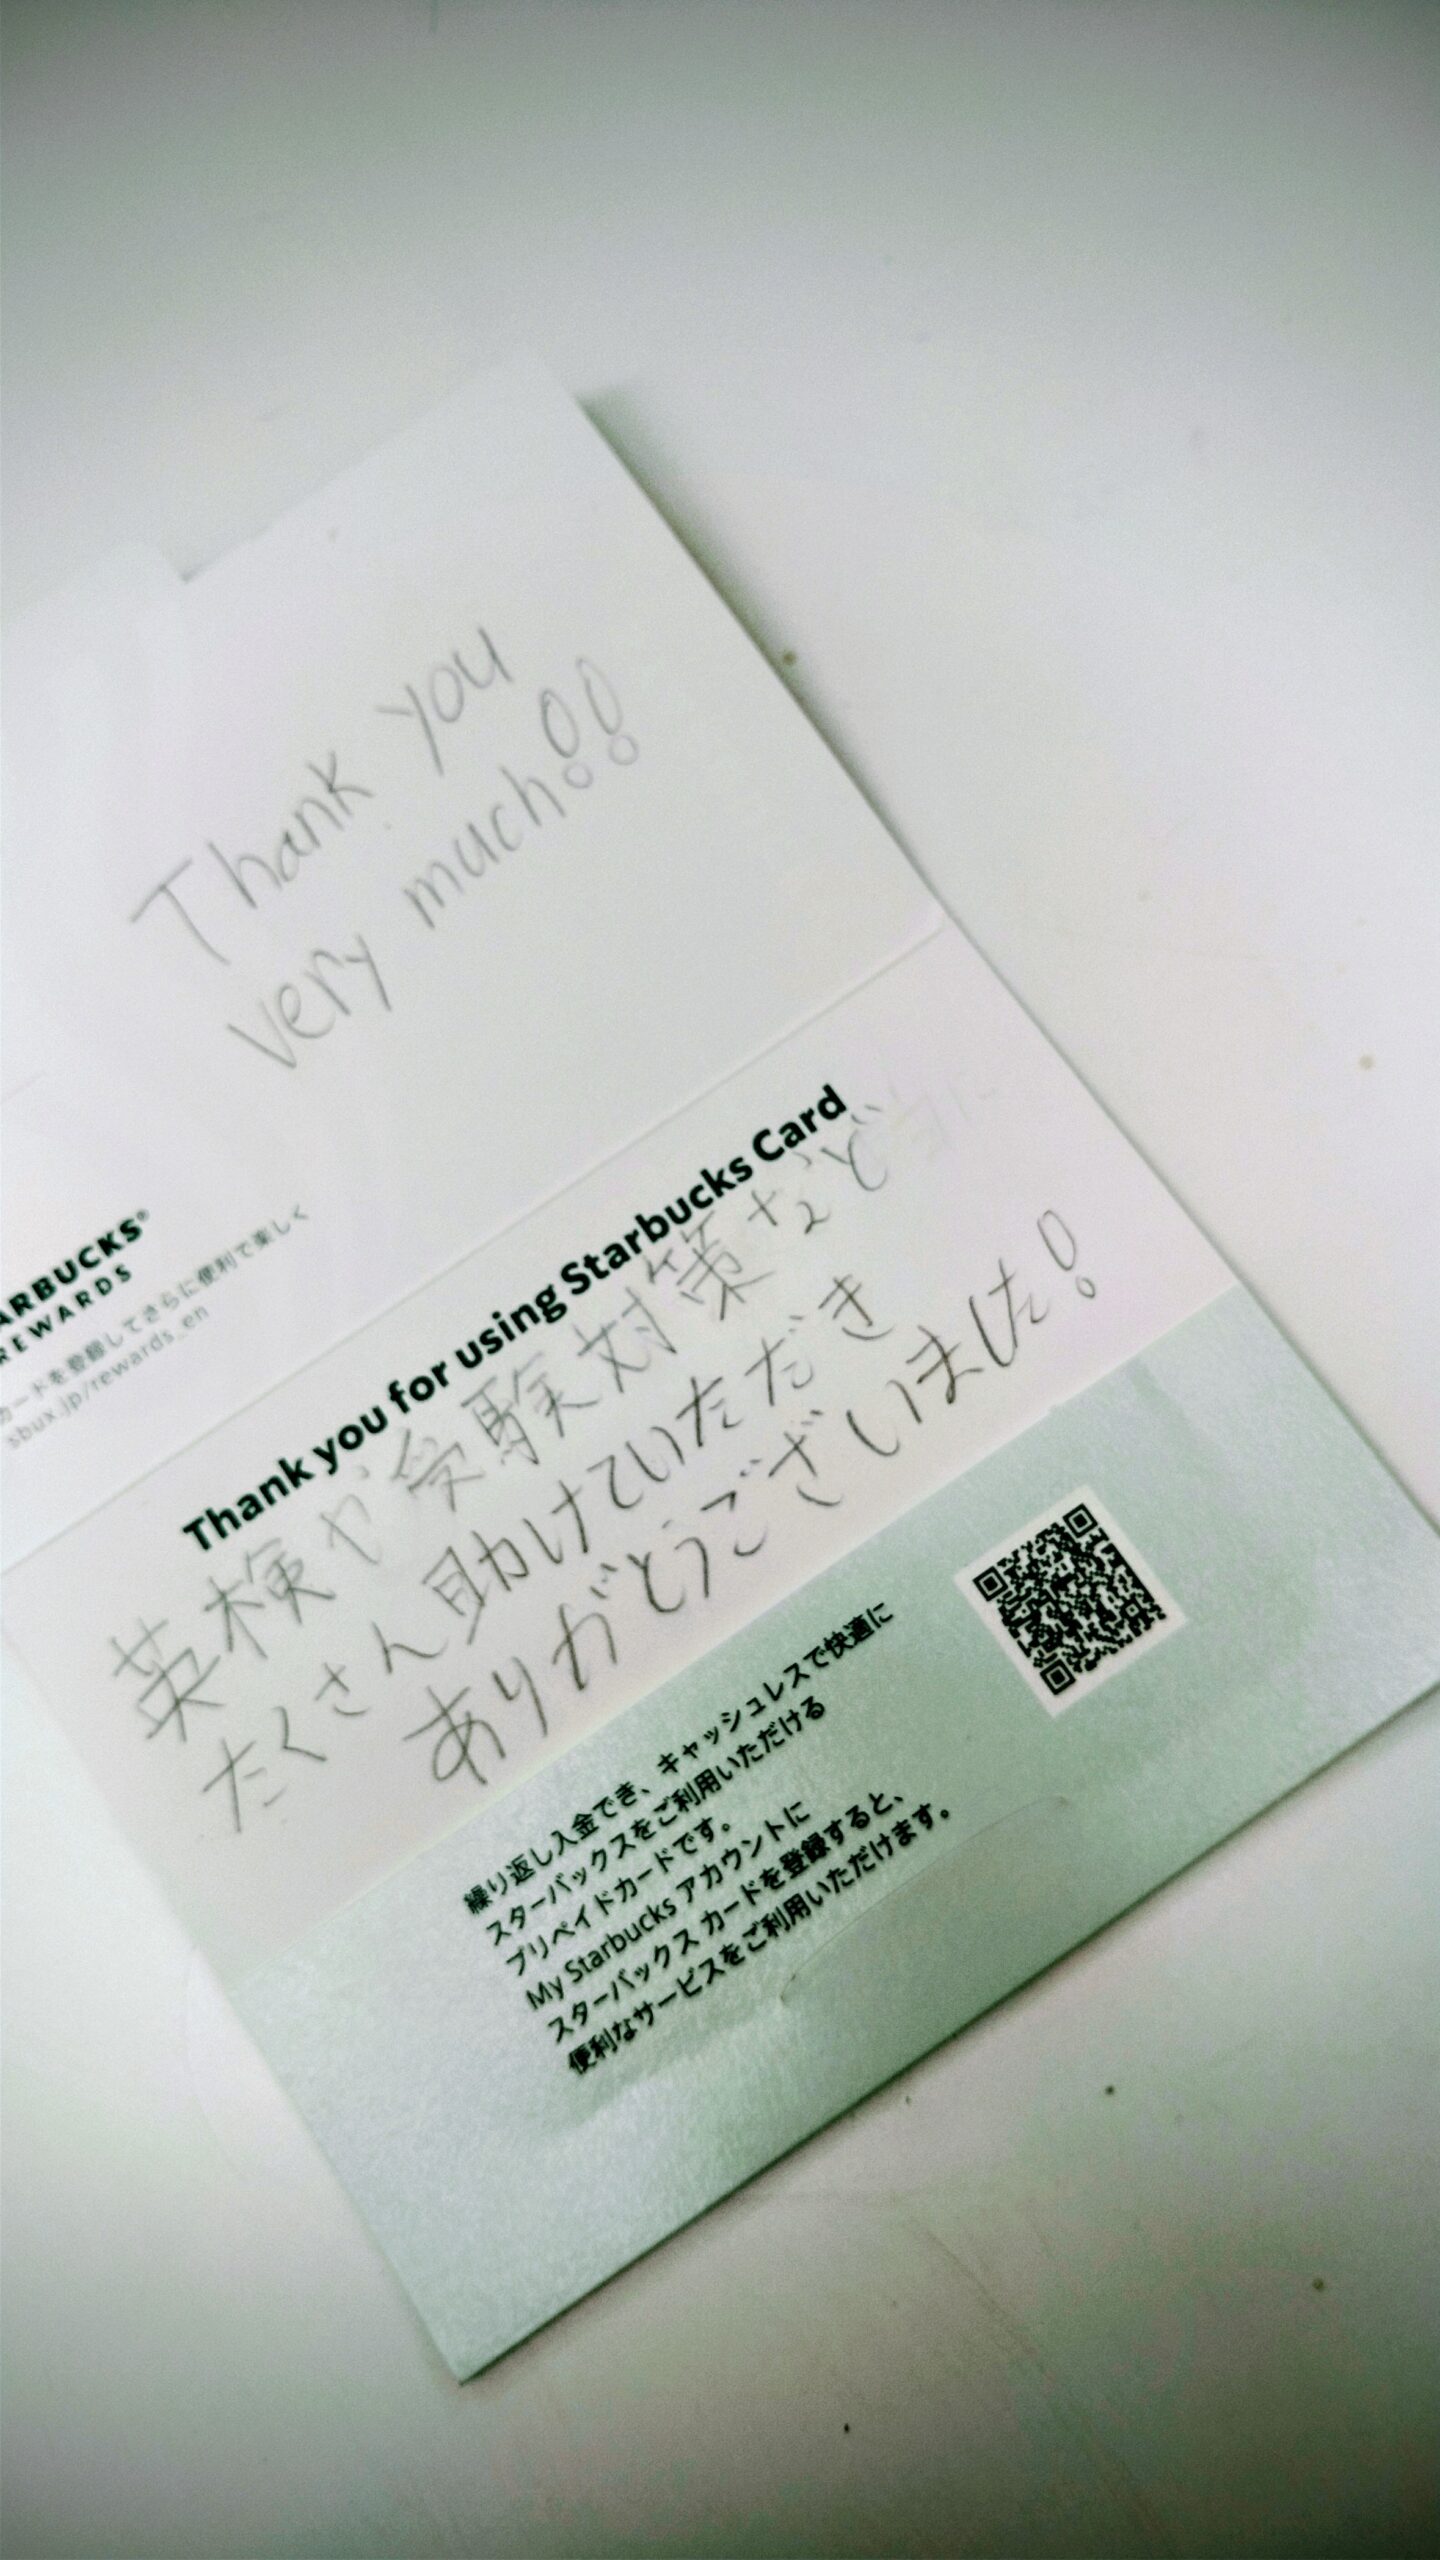 Thank you
very much!!
ARBUCKS®
REWARDS
カードを登録してさらに便利で楽しく
sbux.jp/rewards_en
Thank you for using Starbucks Card
英検や受験対策など
たくさん助けていただき
ありがとうございました!
繰り返し入金でき、キャッシュレスで快適に
スターバックスをご利用いただける
プリペイドカードです。
My Starbucks アカウントに
スターバックス カードを登録すると、
便利なサービスをご利用いただけます。